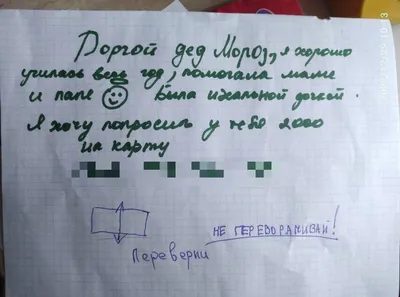 Доргой дед Мороз, я хорошо
училась весь год, помогала маме
и папе Была идеальной дочкой.
Я хочу попросить у тебя 2000
на карту
Переверни
НЕ ПЕРЕВОРАЧИВАЙ!